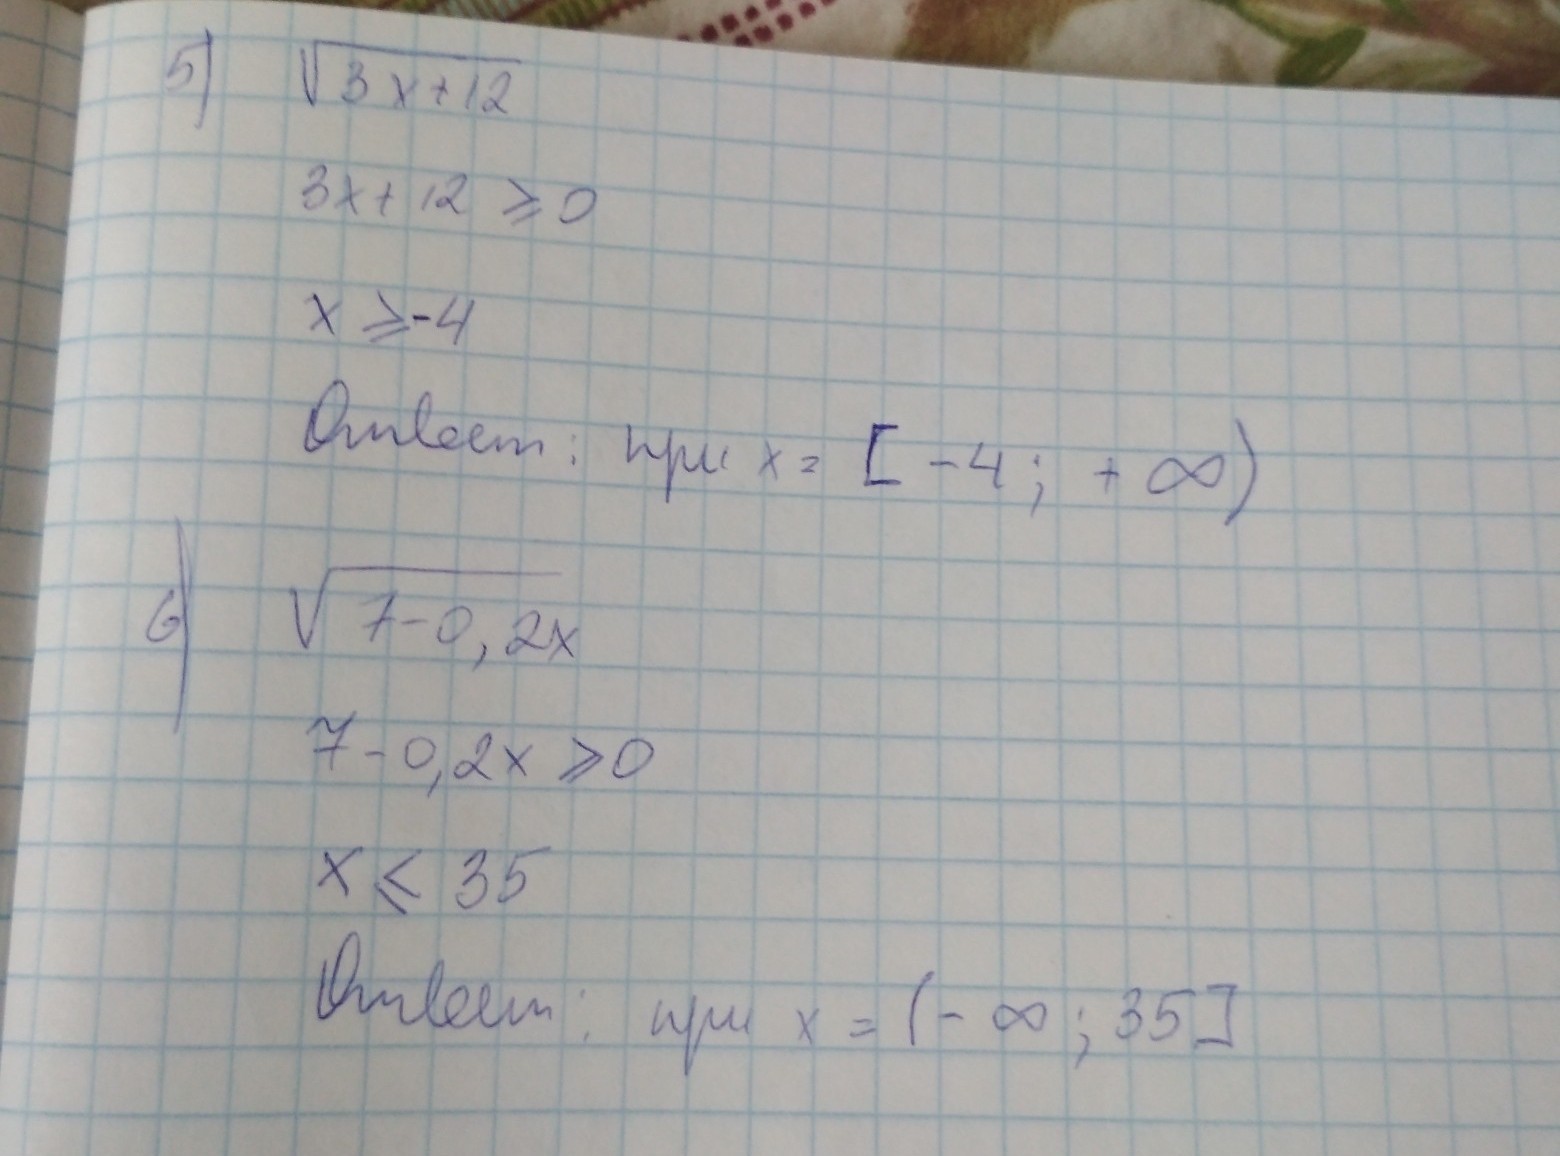 5) √3x+12
3x+12 ⩾ 0
x ⩾ -4
Ответ: при x = [-4; +∞)
6) √7-0,2x
7-0,2x ⩾ 0
x ⩽ 35
Ответ: при x = (-∞; 35]